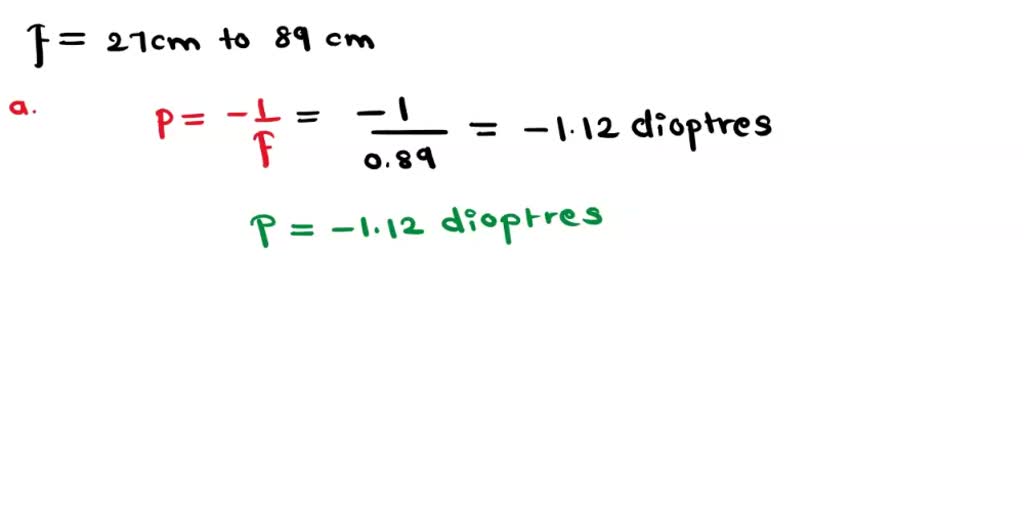 f = 27cm to 89 cm
a. P = -1/F = -1/0.89 = -1.12 dioptres
P = -1.12 dioptres